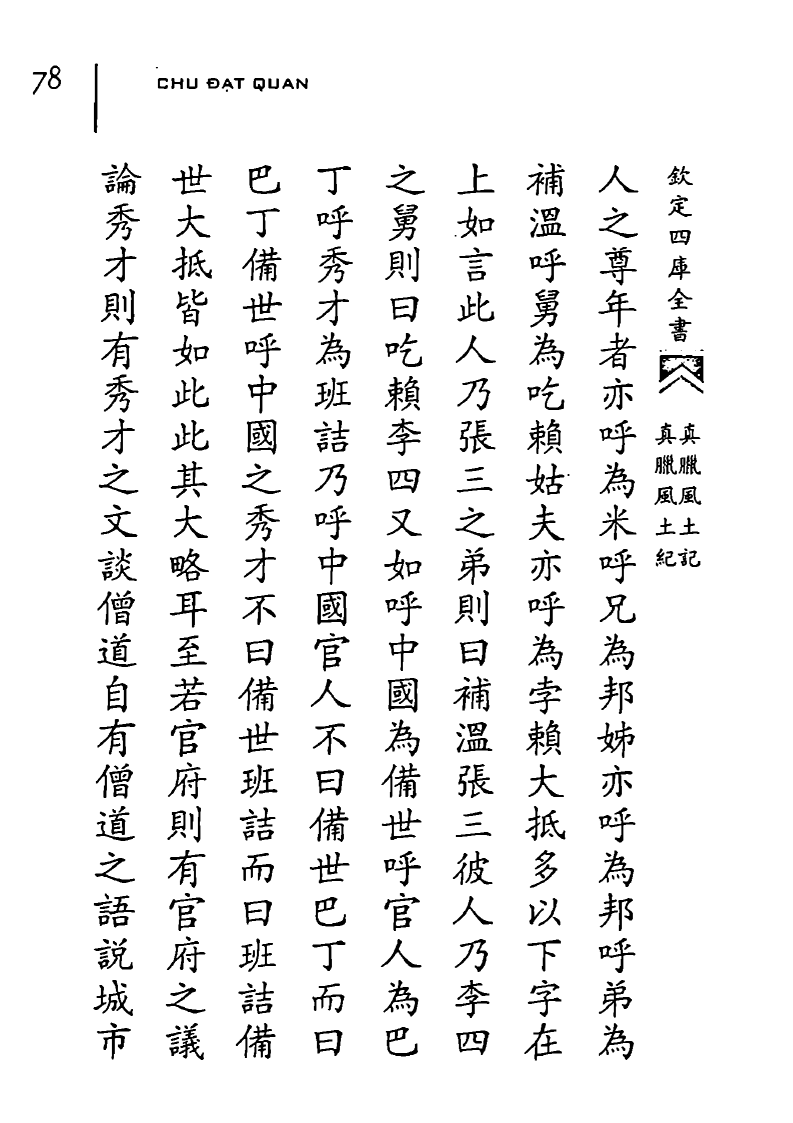 78
CHU ĐẠT QUAN
欽定四庫全書
真臘風土記
真臘風土紀
人之尊年者亦呼為米呼兄為邦姊亦呼為邦呼弟為
補溫呼舅為吃賴姑夫亦呼為孛賴大抵多以下字在
上如言此人乃張三之弟則曰補溫張三彼人乃李四
之舅則曰吃賴李四又如呼中國為備世呼官人為巴
丁呼秀才為班詰乃呼中國官人不曰備世巴丁而曰
巴丁備世呼中國之秀才不曰備世班詰而曰班詰備
世大抵皆如此此其大略耳至若官府則有官府之議
論秀才則有秀才之文談僧道自有僧道之語説城市